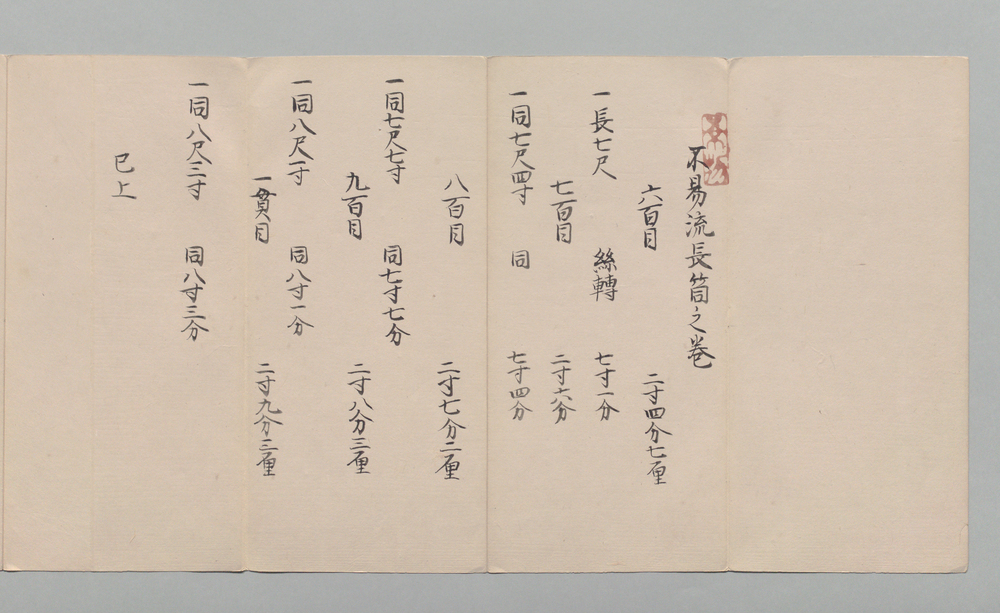 不易流長筒之巻
六百目 二寸四分七厘
一長七尺 絲轉 七寸一分
七百目 二寸六分
一同七尺四寸 同 七寸四分
八百目 二寸七分二厘
一同七尺七寸 同七寸七分
九百目 二寸八分三厘
一同八尺一寸 同八寸一分
一貫目 二寸九分三厘
一同八尺三寸 同八寸三分
已上